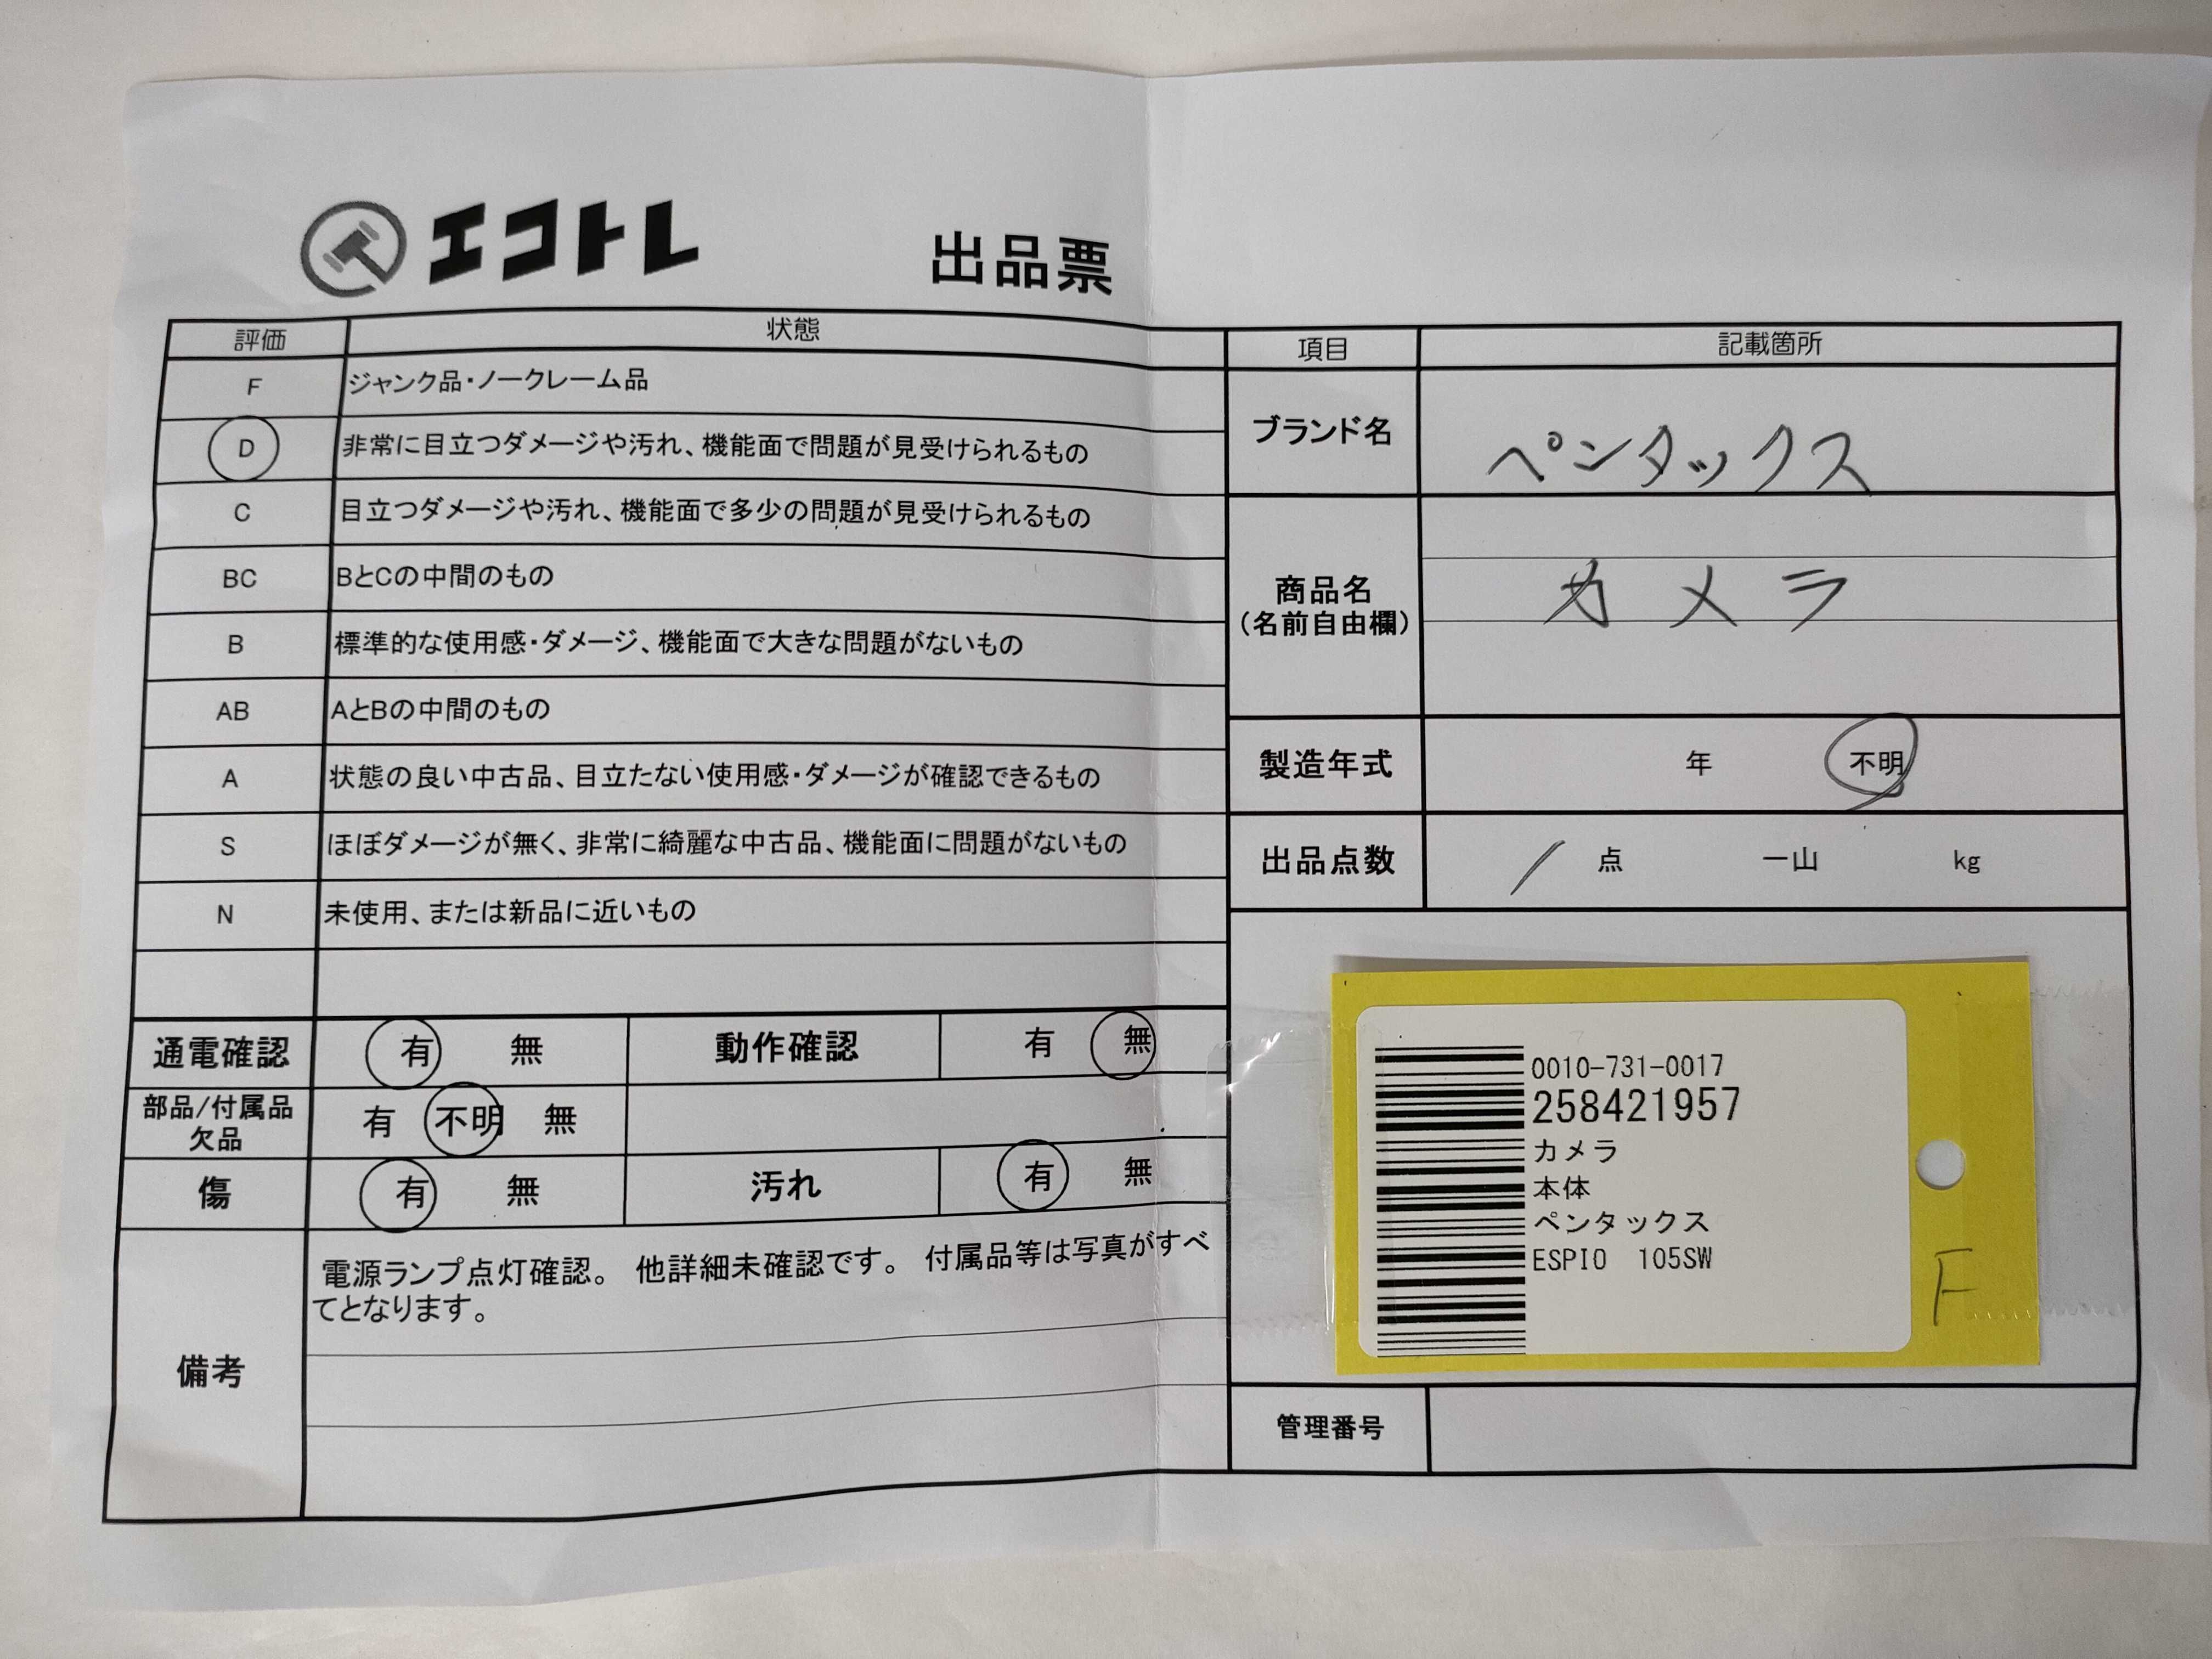 エコトレ 出品票
評価 状態
F ジャンク品・ノークレーム品
D 非常に目立つダメージや汚れ、機能面で問題が見受けられるもの
C 目立つダメージや汚れ、機能面で多少の問題が見受けられるもの
BC BとCの中間のもの
B 標準的な使用感・ダメージ、機能面で大きな問題がないもの
AB AとBの中間のもの
A 状態の良い中古品、目立たない使用感・ダメージが確認できるもの
S ほぼダメージが無く、非常に綺麗な中古品、機能面に問題がないもの
N 未使用、または新品に近いもの
通電確認 有 無 動作確認 有 無
部品/付属品
欠品 有 不明 無
傷 有 無 汚れ 有 無
備考
電源ランプ点灯確認。 他詳細未確認です。 付属品等は写真がすべ
てとなります。
項目 記載箇所
ブランド名 ペンタックス
商品名
(名前自由欄) カメラ
製造年式 年 不明
出品点数 1 点 一山 kg
0010-731-0017
258421957
カメラ
本体
ペンタックス
ESPIO 105SW
F
管理番号